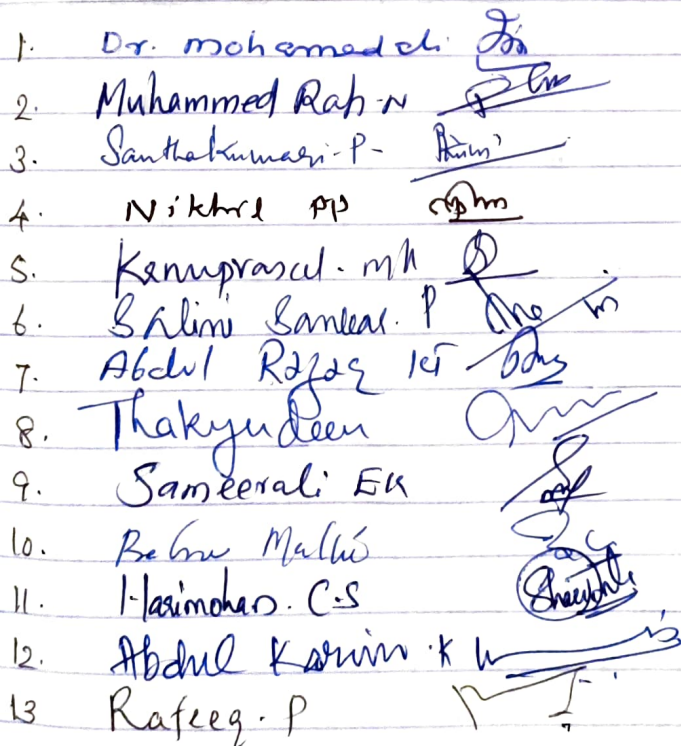 1. Dr. mohamed ali
2. Muhammed Rafi N
3. Santhakumari - P -
4. Nikhil AP
5. Kanuprasad. mk
6. Salini Sankar. P
7. Abdul Razaq KT
8. Thakyudeen
9. Sameerali EK
10. Babu
11. Harimohan. C.S
12. Abdul Karim. K
13 Rafeeq. P